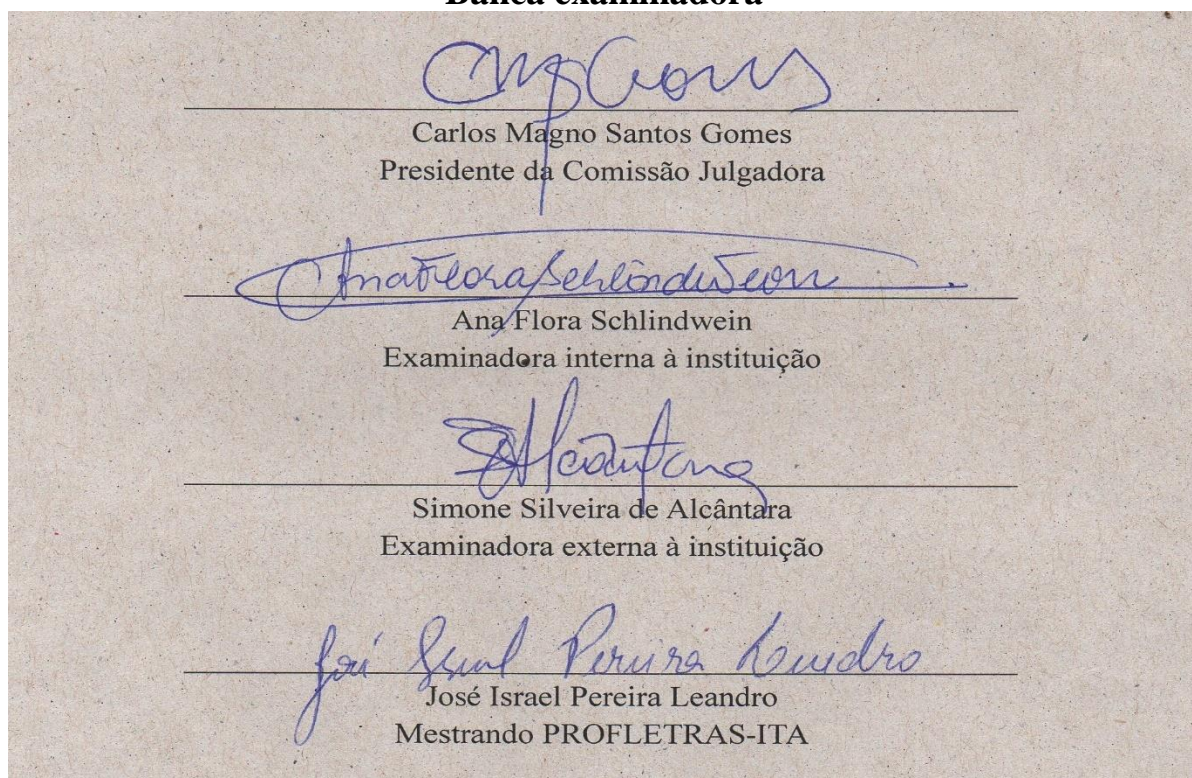 Banca examinadora
Carlos Magno Santos Gomes
Presidente da Comissão Julgadora
Ana Flora Schlindwein
Ana Flora Schlindwein
Examinadora interna à instituição
Simone Silveira de Alcântara
Examinadora externa à instituição
José Israel Pereira Leandro
José Israel Pereira Leandro
Mestrando PROFLETRAS-ITA